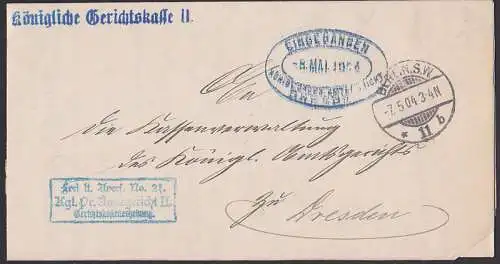 Königliche Gerichtskasse II.
EINGEGANGEN
-8. MAI 1904
DRESDEN
BERLIN S.W.
-7.5.04.3-4N
* 11 b
An
die Kassenverwaltung
des Königl. Amtsgerichts
zu Dresden
Frei lt. Avers. No. 21.
Kgl. Pr. Amtsgericht II.